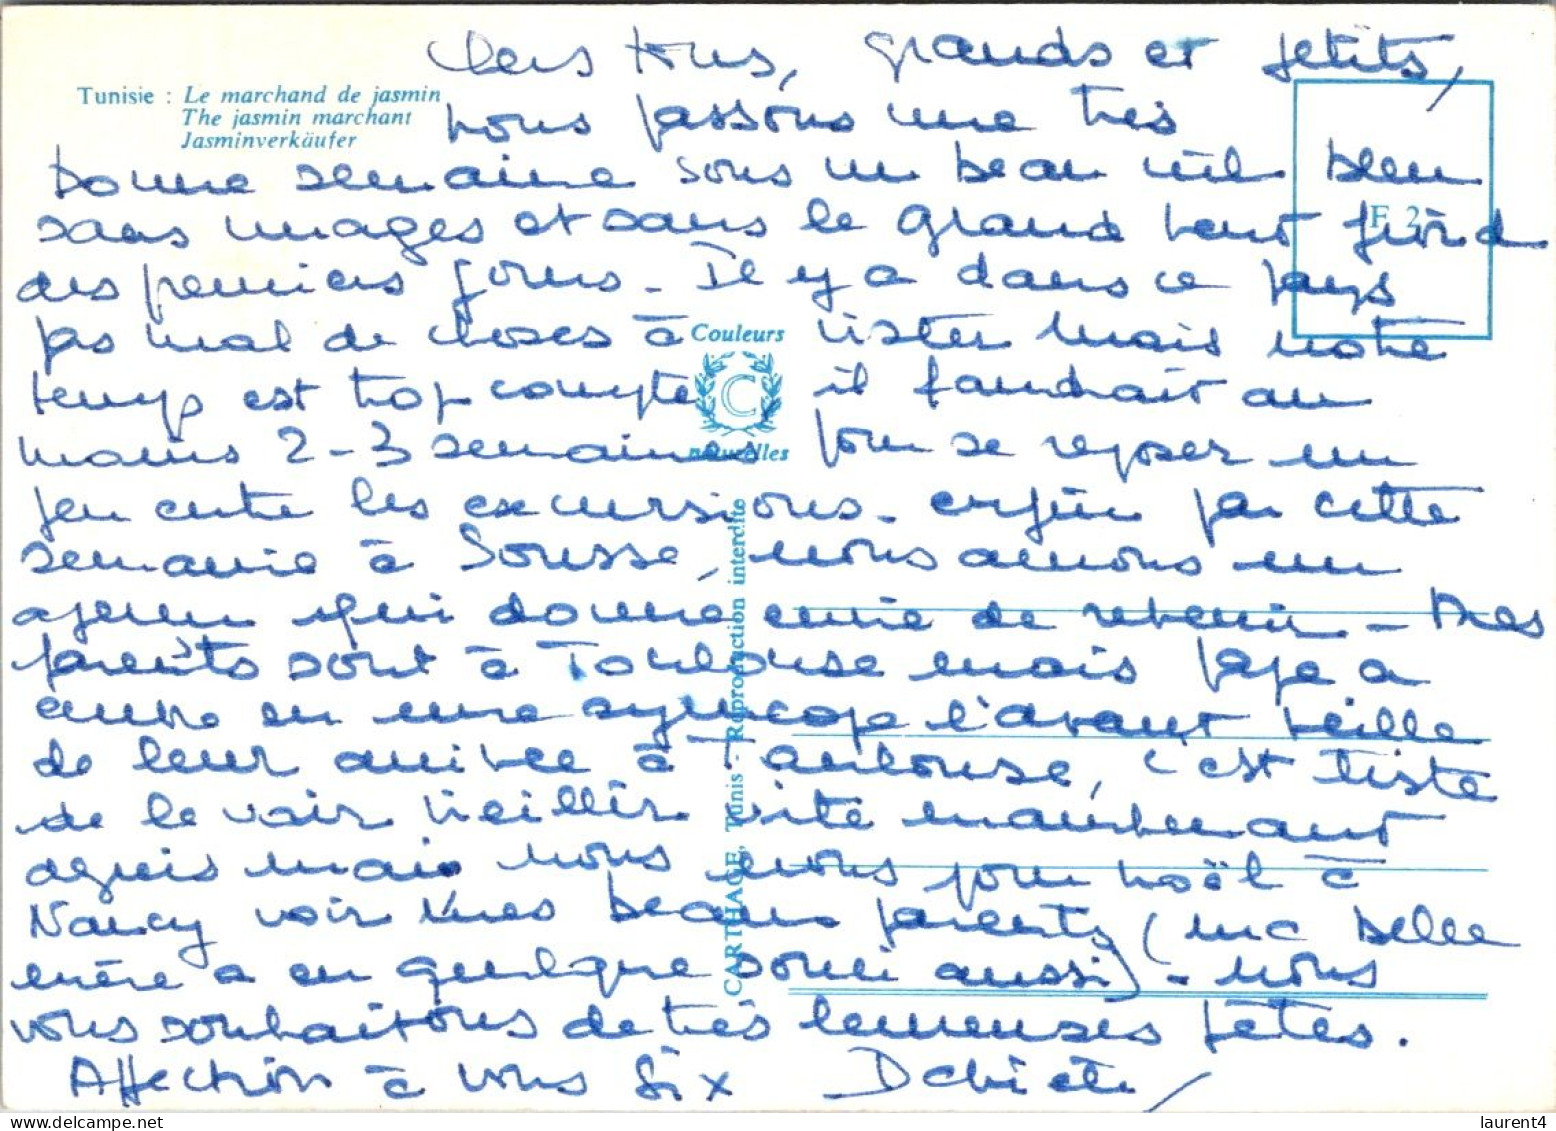 Chers tous, grands et petits,
Tunisie : Le marchand de jasmin
The jasmin marchant
Jasminverkäufer
nous passons une très
bonne semaine sous un beau ciel bleu
sans nuages et sans le grand vent froid
E 2
des premiers jours. Il y a dans ce pays
pas mal de choses à visiter mais notre
Couleurs
C
naturelles
temps est trop compté, il faudrait au
moins 2-3 semaines pour se reposer un
peu entre les excursions. enfin par cette
semaine à Sousse, nous avons un
aperçu qui donne envie de revenir. Mes
parents sont à Toulouse mais papa a
eu une syncope l'avant veille
de leur arrivée à Toulouse, c'est triste
de le voir vieillir vite maintenant
depuis mai. nous irons pour noël à
Nancy voir mes beaux parents (ma belle
mère a eu quelque souci aussi). nous
vous souhaitons de très heureuses fêtes.
Affection à vous six
CARTHAGE, Tunis - Reproduction interdite
laurent4